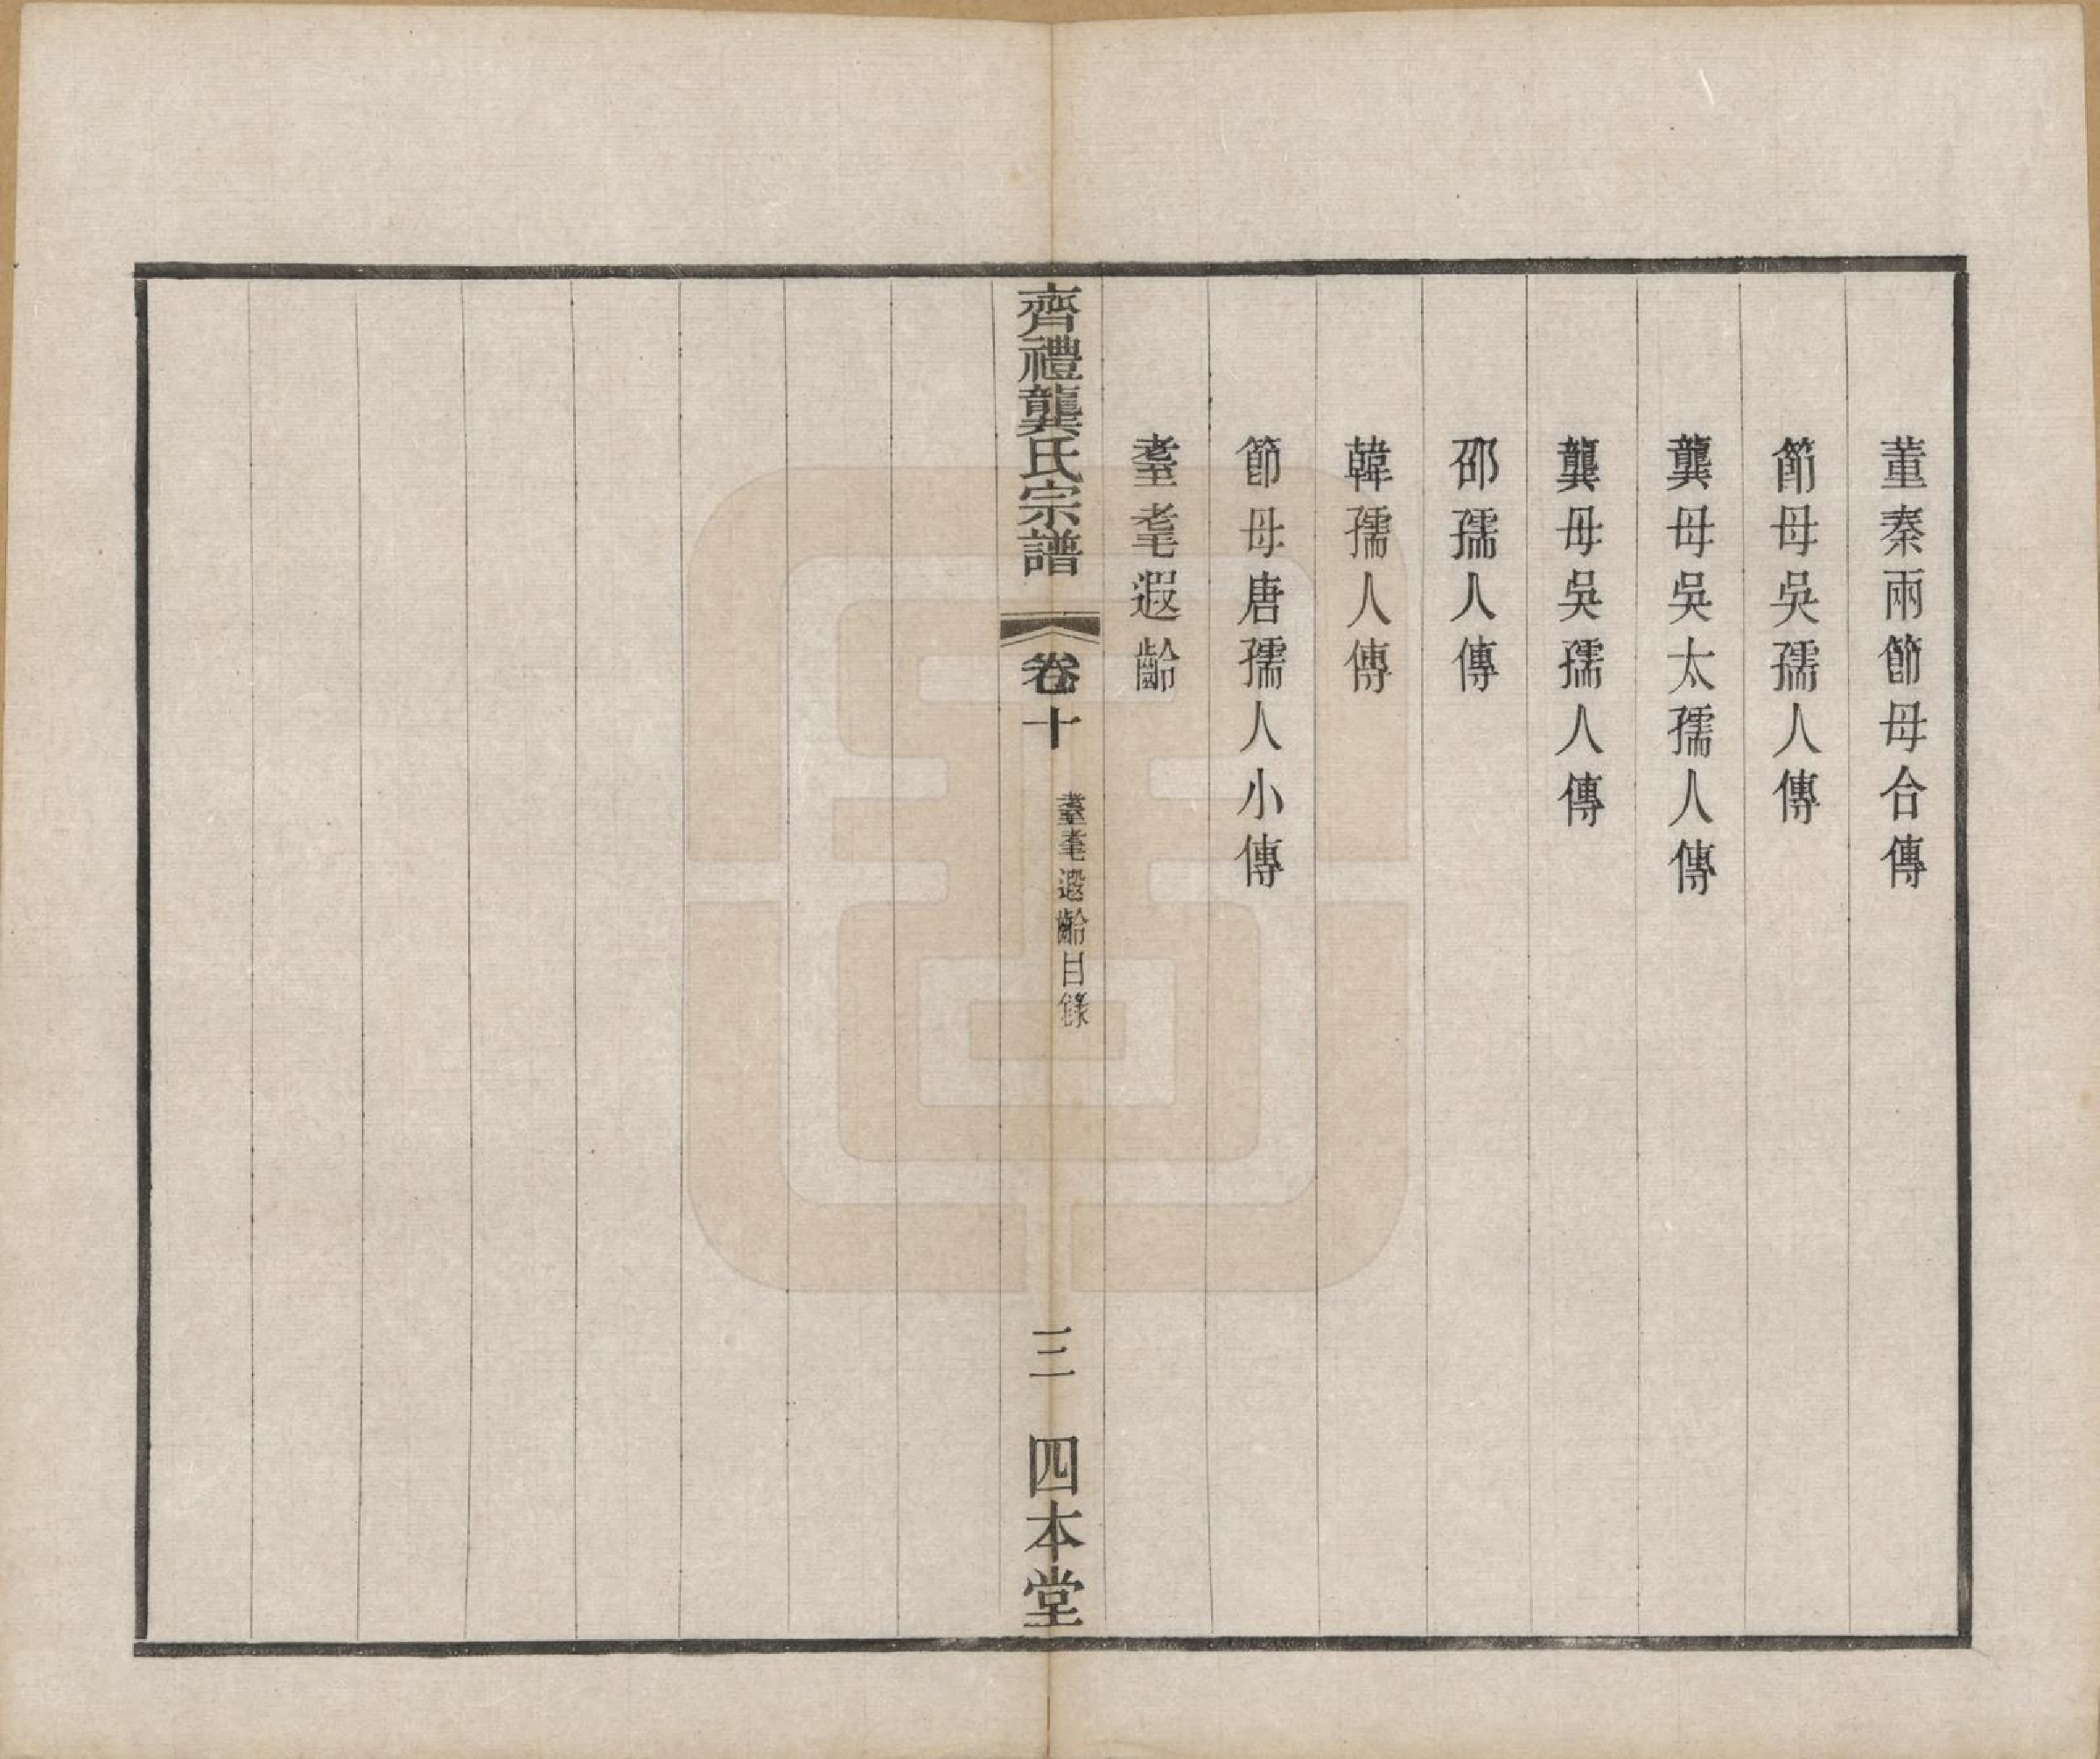 董秦兩節母合傳
節母吳孺人傳
龔母吳太孺人傳
龔母吳孺人傳
邵孺人傳
韓孺人傳
節母唐孺人小傳
耋耄遐齡
齊禮龔氏宗譜 卷十 耋耄遐齡目錄 三 四本堂